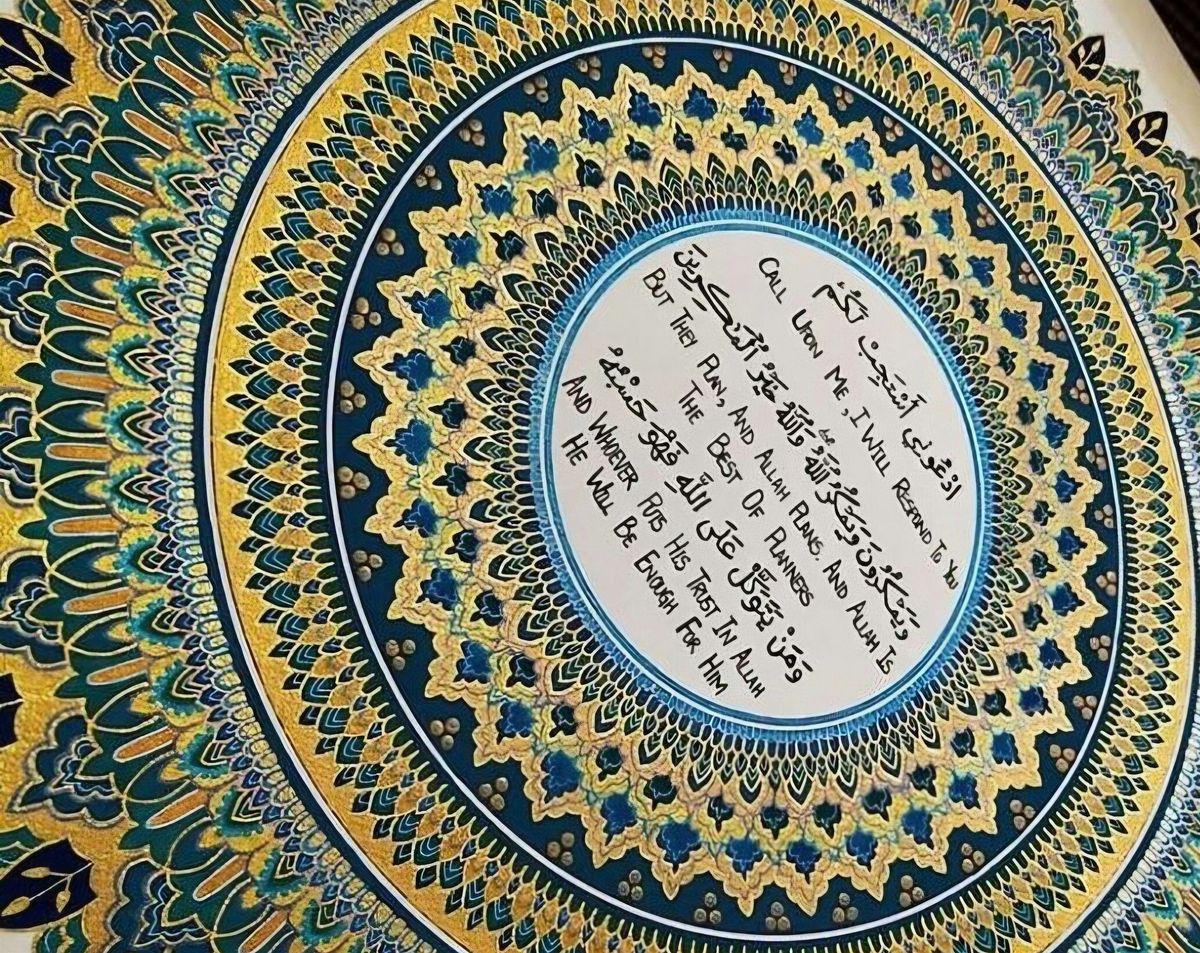 ادْعُونِي أَسْتَجِبْ لَكُمْ
CALL UPON ME, I WILL RESPOND TO YOU
وَيَمْكُرُونَ وَيَمْكُرُ اللَّهُ وَاللَّهُ خَيْرُ الْمَاكِرِينَ
BUT THEY PLAN, AND ALLAH PLANS. AND ALLAH IS
THE BEST OF PLANNERS
وَمَنْ يَتَوَكَّلْ عَلَى اللَّهِ فَهُوَ حَسْبُهُ
AND WHOEVER PUTS HIS TRUST IN ALLAH
HE WILL BE ENOUGH FOR HIM